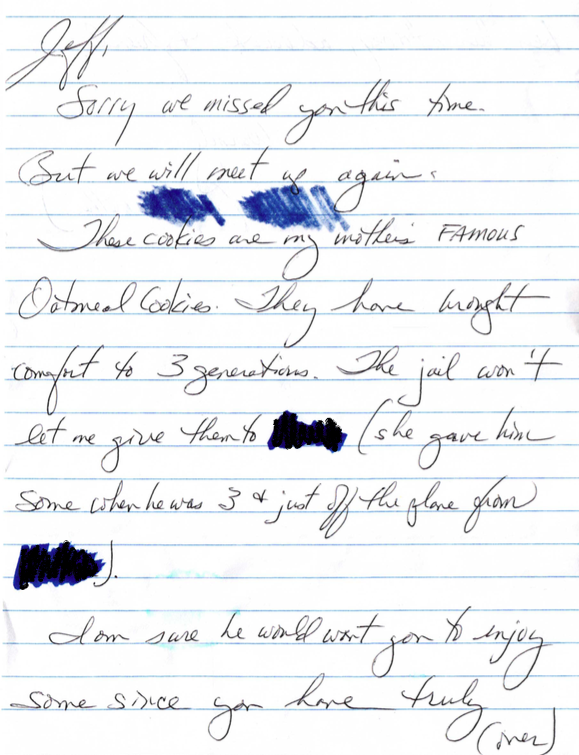 Jeff,
Sorry we missed you this time.
But we will meet up again.
These cookies are my mother's FAMOUS
Oatmeal Cookies. They have brought
comfort to 3 generations. The jail won't
let me give them to (she gave him
some when he was 3 & just off the plane from
).
I am sure he would want you to enjoy
some since you have truly
(over)